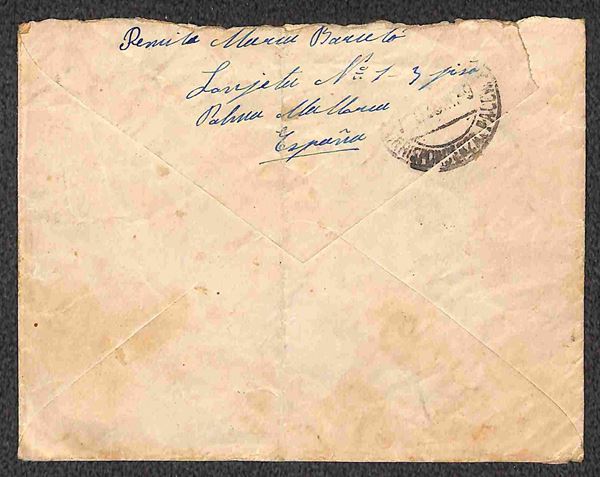 Remite Maria Barceló
Lonjeta Nº 1 - 3 piso
Palma Mallorca
España